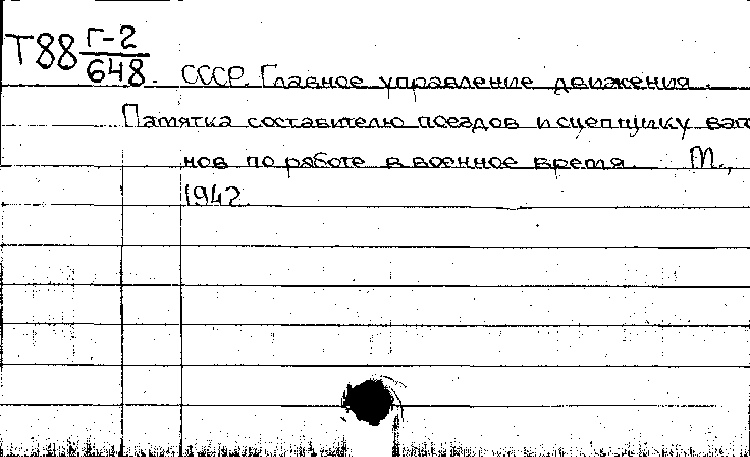 Т88 Г-2
648. СССР. Главное управление движения.
Памятка составителю поездов и сцепщику ваго
нов по работе в военное время. М.,
1942